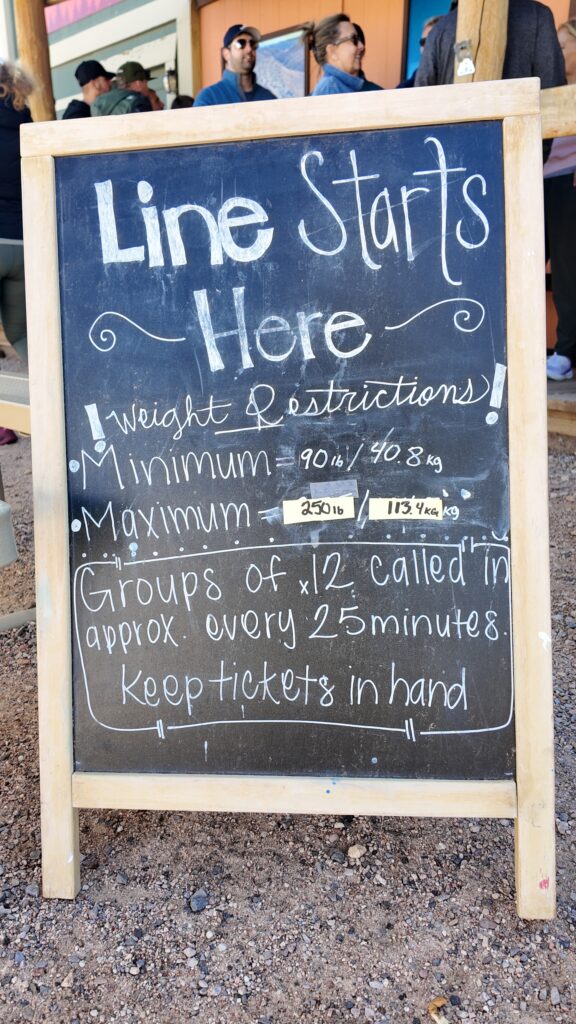 Line Starts
Here
! Weight Restrictions !
• Minimum = 90 lb / 40.8 kg
• Maximum = 250 lb / 113.4 KG kg
Groups of x12 called in
approx. every 25 minutes.
Keep tickets in hand